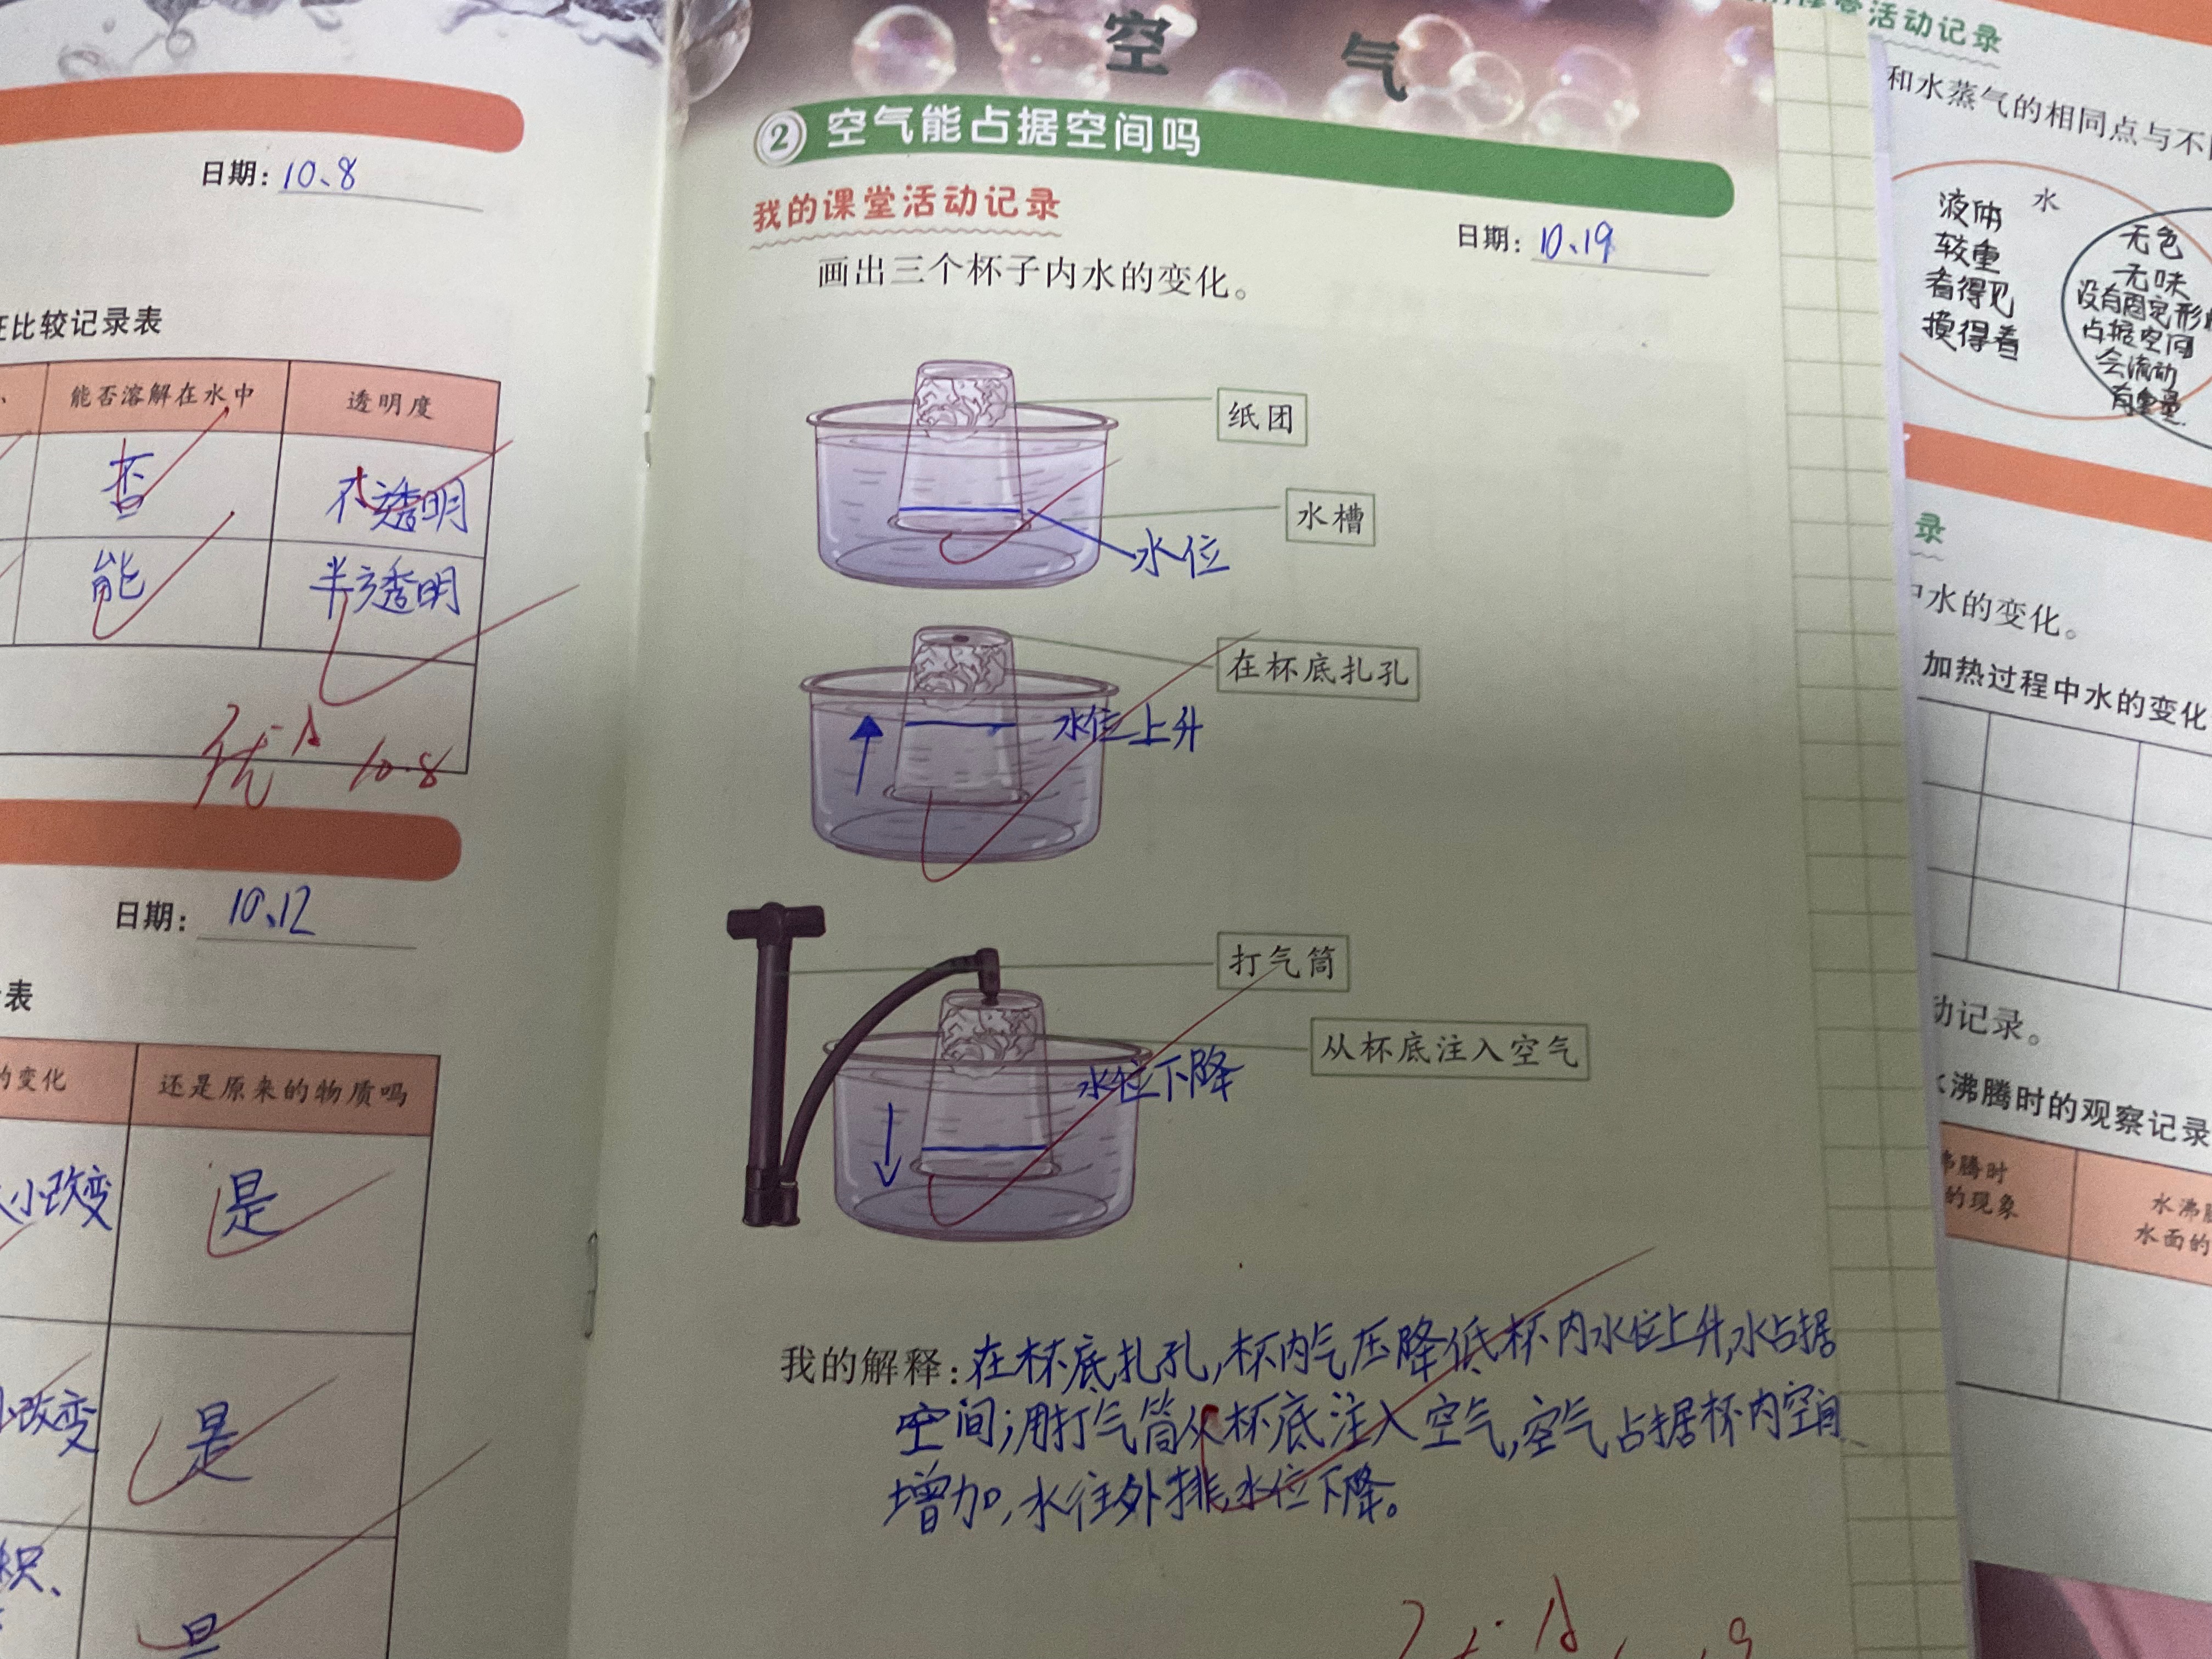 日期：10、8
比较记录表
能否溶解在水中
透明度
否
不透明
能
半透明
优 A 10.8
日期：10、12
表
变化
还是原来的物质吗
小改变
是
改变
是
积、
是
空 气
② 空气能占据空间吗
我的课堂活动记录
日期：10、19
画出三个杯子内水的变化。
纸团
水槽
水位
在杯底扎孔
水位上升
打气筒
从杯底注入空气
水位下降
我的解释：在杯底扎孔，杯内气压降低杯内水位上升，水占据
空间；用打气筒从杯底注入空气，空气占据杯内空间
增加，水往外排，水位下降。
活动记录
和水蒸气的相同点与不
水
液体
较重
看得见
摸得着
无色
无味
没有固定形
占据空间
会流动
有重量
录
水的变化。
加热过程中水的变化
动记录。
沸腾时的观察记录
沸腾时
的现象
水沸
水面的